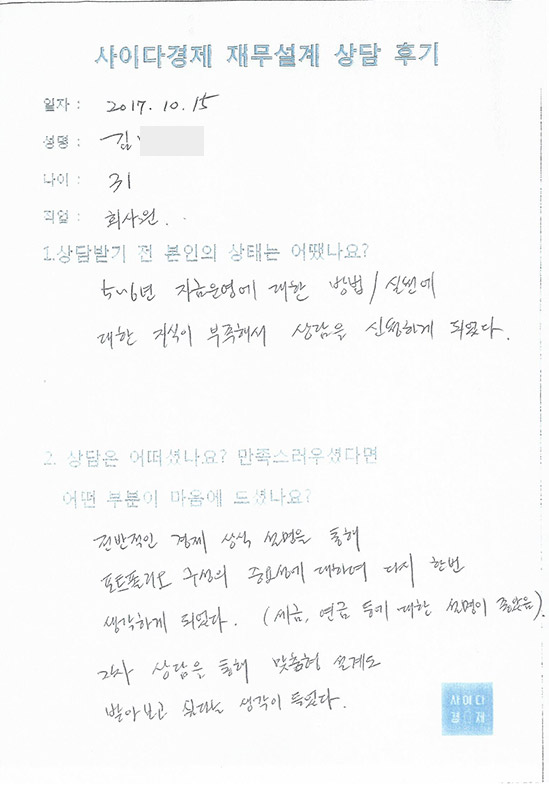 사이다경제 재무설계 상담 후기
일자 : 2017. 10. 15
성명 : 김
나이 : 31
직업 : 회사원.
1.상담받기 전 본인의 상태는 어땠나요?
5~6년 자금운영에 대한 방법/실천에
대한 지식이 부족해서 상담을 신청하게 되었다.
2. 상담은 어떠셨나요? 만족스러우셨다면
어떤 부분이 마음에 드셨나요?
전반적인 경제 상식 설명을 통해
포트폴리오 구성의 중요성에 대하여 다시 한번
생각하게 되었다. (세금, 연금 등에 대한 설명이 좋았음).
2차 상담을 통해 맞춤형 설계도
받아보고 싶다는 생각이 들었다.
사이다
경제